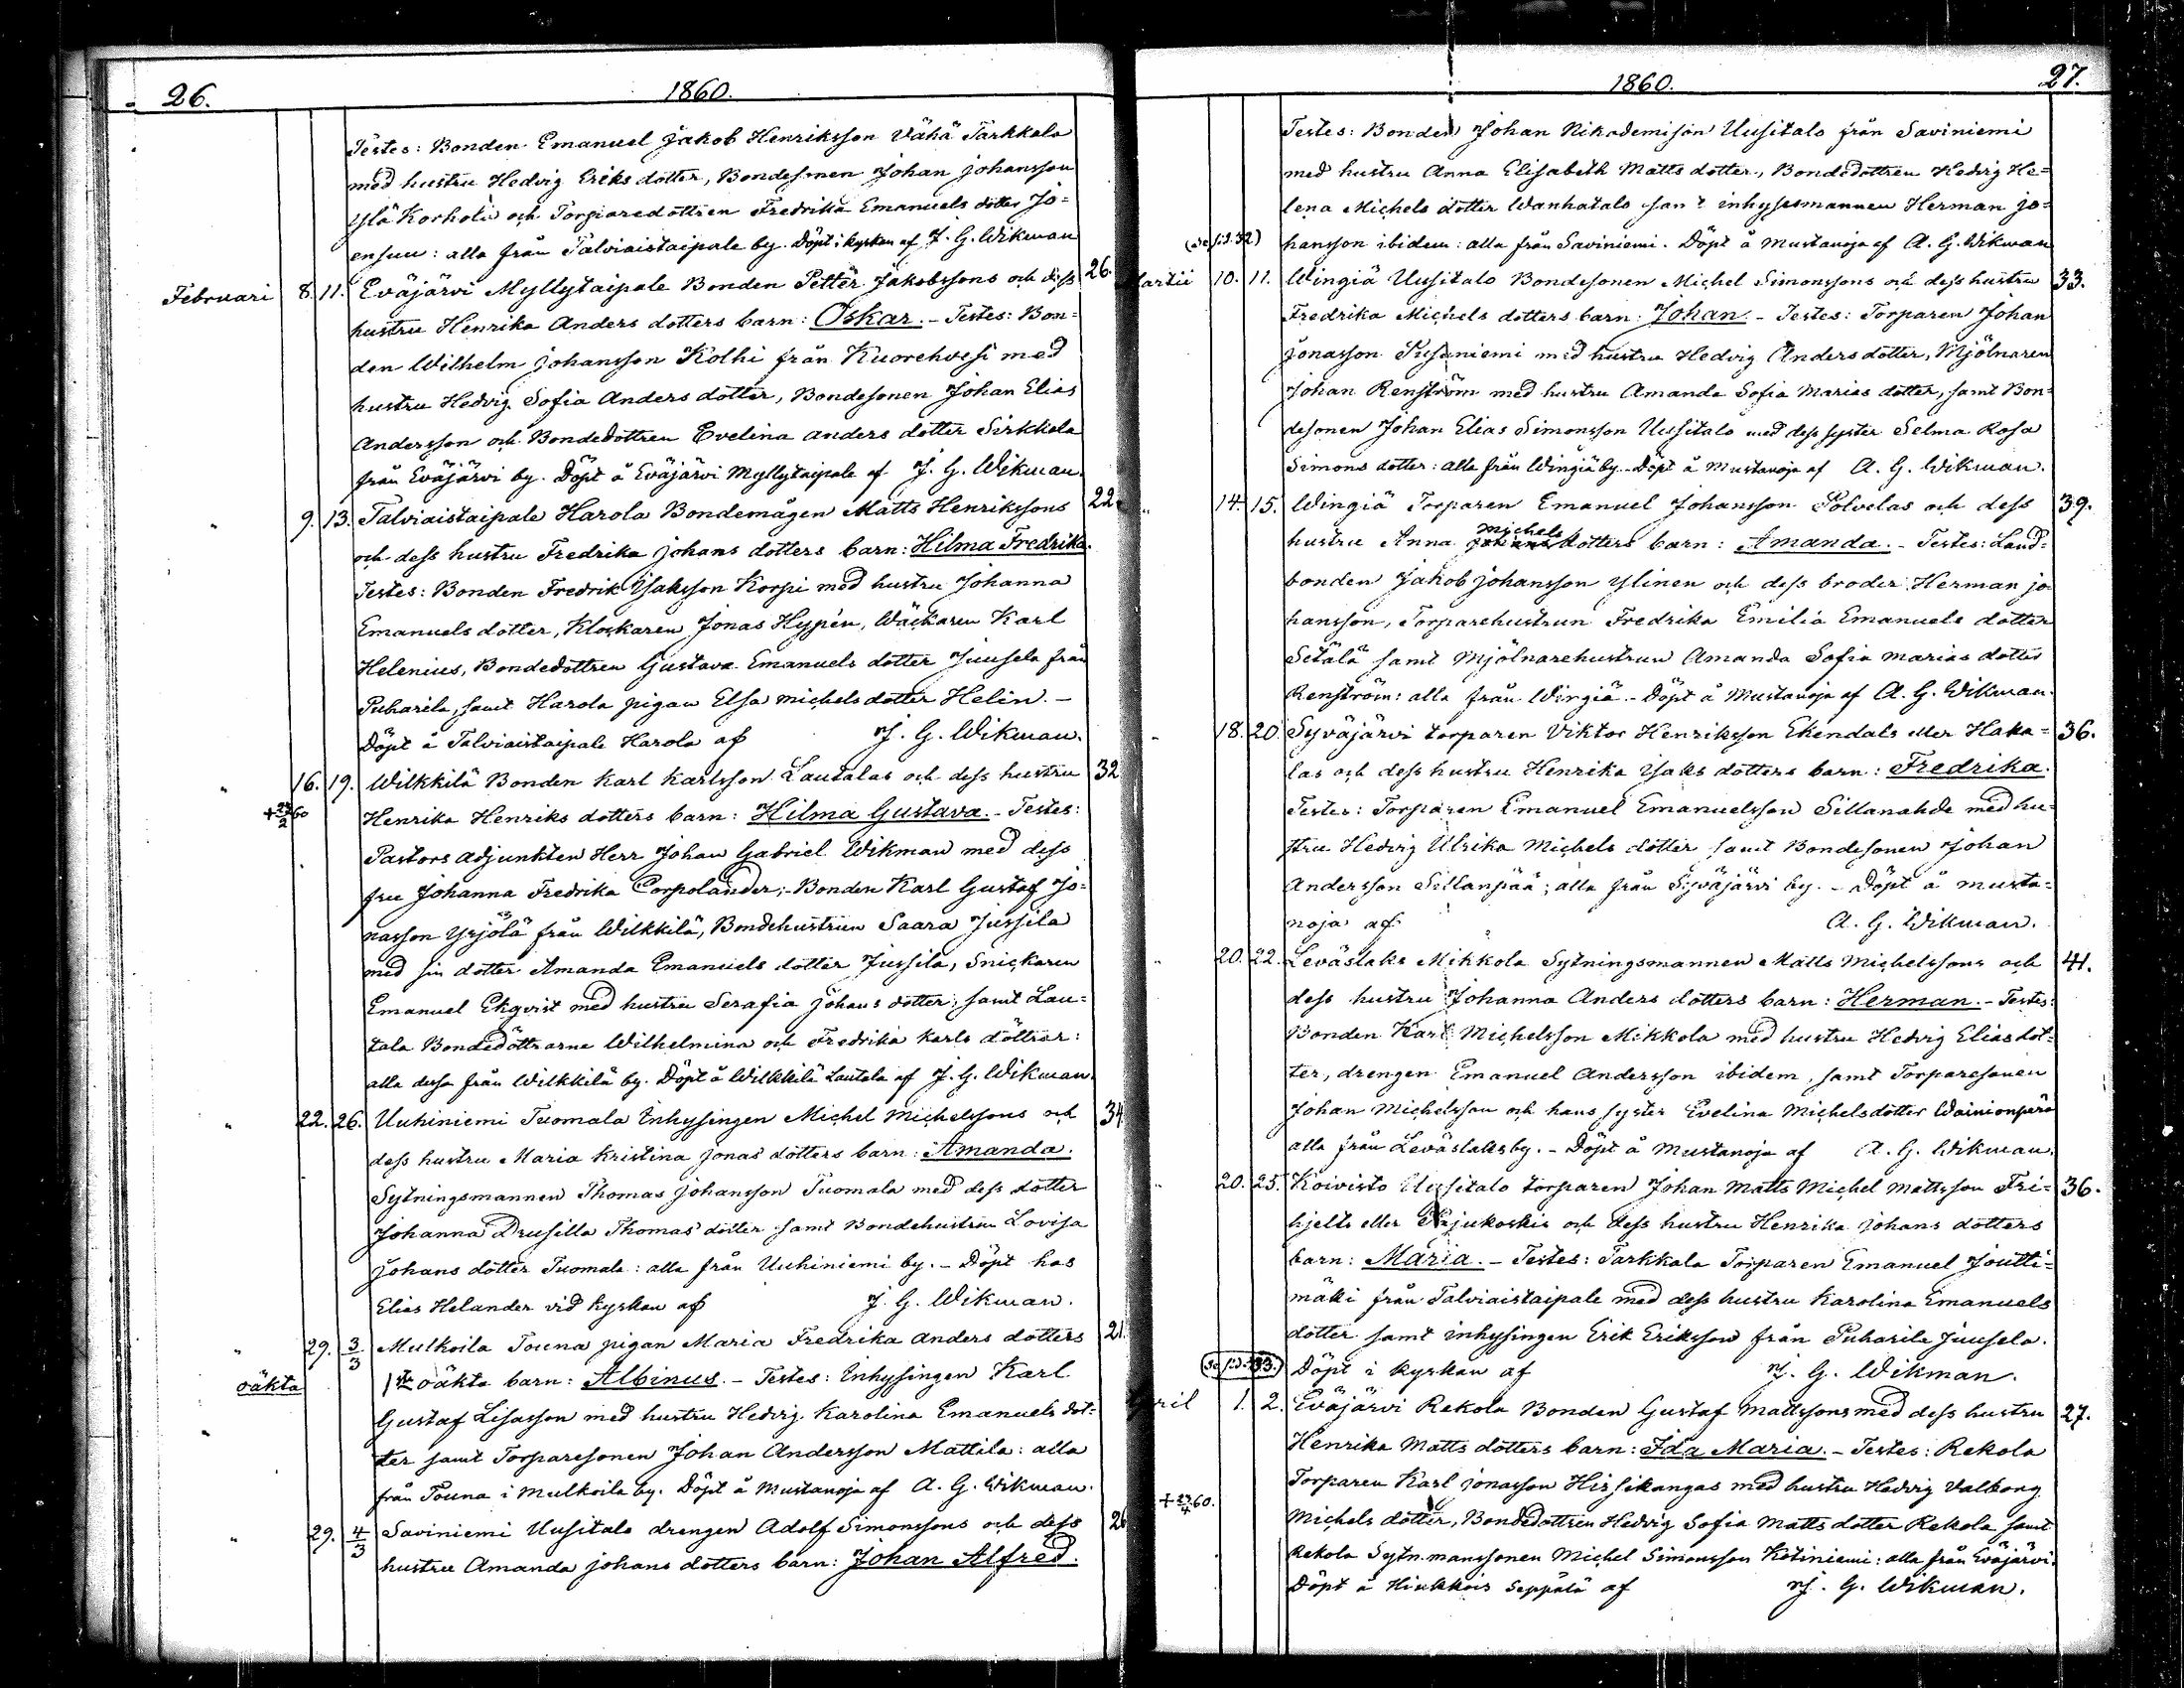 26.
1860.
Testes: Bonden Emanuel Jakob Henriksson Vähä Tarkkala
med hustru Hedvig Eriks dotter, Bondesonen Johan Johansson
Ylä Korholi och Torparedottren Fredrika Emanuels dotter Jo=
ensuu: alla från Talviaistaipale by. Döpt i kyrkan af J. G. Wikman
Februari 8. 11. Eväjärvi Myllytaipale Bonden Petter Jakobssons och dess 26.
hustru Henrika Anders dotters barn: Oskar. - Testes: Bon=
den Wilhelm Johansson Kolhi från Kuorehvesi med
hustru Hedvig Sofia Anders dotter, Bondesonen Johan Elias
Andersson och Bondedottren Evelina Anders dotter Sirkkola
från Eväjärvi by. Döpt å Eväjärvi Myllytaipale af J. G. Wikman.
" 9. 13. Talviaistaipale Harola Bondemågen Matts Henrikssons 22
och dess hustru Fredrika Johans dotters barn: Hilma Fredrika.
Testes: Bonden Fredrik Ysaksson Korpi med hustru Johanna
Emanuels dotter, Klockaren Jonas Hypén, Wäckaren Karl
Helenius, Bondedottren Gustava Emanuels dotter Juusela från
Puharila, samt Harola pigan Elsa Michelsdotter Helin. -
Döpt å Talviaistaipale Harola af J. G. Wikman.
" 16. 19. Wilkkilä Bonden Karl Karlsson Lautalas och dess hustru 32
+ 23/2 60 Henrika Henriks dotters barn: Hilma Gustava. - Testes:
Pastors adjunkten Herr Johan Gabriel Wikman med dess
fru Johanna Fredrika Corpolander; - Bonden Karl Gustaf Jo=
nasson Yrjölä från Wilkkilä, Bondehustrun Saara Jussila
med sin dotter Amanda Emanuels dotter Jussila, Snickaren
Emanuel Ekqvist med hustru Serafia Johans dotter, samt Lau=
tala Bondedöttrarne Wilhelmina och Fredrika Karls döttrar:
alla dessa från Wilkkilä by. Döpt å Wilkkilä Lautala af J. G. Wikman.
" 22. 26. Uuhiniemi Tuomala Inhysingen Michel Michelssons och 34
dess hustru Maria Kristina Jonas dotters barn: Amanda.
Sytningsmannen Thomas Johansson Tuomala med dess dotter
Johanna Drusilla Thomas dotter samt Bondehustrun Lovisa
Johans dotter Tuomala: alla från Uuhiniemi by. - Döpt hos
Elias Helander vid kyrkan af J. G. Wikman.
" 29. 3/3 Mulkoila Touna pigan Maria Fredrika Anders dotters 21.
oäkta 1sta oäkta barn: Albinus. - Testes: Inhysingen Karl
Gustaf Lisasson med hustru Hedvig Karolina Emanuels dot=
ter samt Torparesonen Johan Andersson Mattila: alla
från Touna i Mulkoila by. Döpt å Mustanoja af A. G. Wikman.
" 29. 4/3 Saviniemi Uusitalo drengen Adolf Simonssons och dess 26
hustru Amanda Johans dotters barn: Johan Alfred.
1860.
27.
Testes: Bonden Johan Nikodemison Uusitalo från Saviniemi
med hustru Anna Elisabeth Matts dotter, Bondedottren Hedvig He=
lena Michels dotter Wanhatalo samt inhysesmannen Herman Jo=
(se sid. 32) hansson ibidem: alla från Saviniemi. Döpt å Mustanoja af A. G. Wikman
Martii 10. 11. Wingiä Uusitalo Bondesonen Michel Simonssons och dess hustru 33.
Fredrika Michels dotters barn: Johan. - Testes: Torparen Johan
Jonasson Susiniemi med hustru Hedvig Anders dotter, Mjölnaren
Johan Renström med hustru Amanda Sofia Marias dotter, samt Bon=
desonen Johan Elias Simonsson Uusitalo med dess syster Selma Rosa
Simons dotter: alla från Wingiä by. - Döpt å Mustanoja af A. G. Wikman.
" 14. 15. Wingiä Torparen Emanuel Johansson Polvelas och dess 39.
hustru Anna Michels dotters barn: Amanda. - Testes: Land=
bonden Jakob Johansson Ylinen och dess broder Herman Jo
hansson, Torparehustrun Fredrika Emilia Emanuels dotter
Setälä samt Mjölnarehustrun Amanda Sofia Marias dotter
Renström: alla från Wingiä. - Döpt å Mustanoja af A. G. Wikman.
" 18. 20. Syväjärvi torparen Viktor Henriksson Ekendals eller Haka= 36.
las och dess hustru Henrika Ysaks dotters barn: Fredrika.
Testes: Torparen Emanuel Emanuelsson Sillanahde med hu=
stru Hedvig Ulrika Michels dotter samt Bondesonen Johan
Andersson Sillanpää; alla från Syväjärvi by. - Döpt å Musta=
noja af A. G. Wikman.
" 20. 22. Leväslaks Mikkola Sytningsmannen Matts Michelssons och 41.
dess hustru Johanna Anders dotters barn: Herman. - Testes:
Bonden Karl Michelsson Mikkola med hustru Hedvig Elias dot=
ter, drengen Emanuel Andersson ibidem, samt Torparesonen
Johan Michelsson och hans syster Evelina Michelsdotter Wainionperä
alla från Leväslaks by. - Döpt å Mustanoja af A. G. Wikman.
" 20. 25. Koivisto Uusitalo torparen Johan Matts Michel Mattsson Fri= 36.
hjelts eller Parjukoskis och dess hustru Henrika Johans dotters
barn: Maria. - Testes: Tarkkala Torparen Emanuel Joutti=
mäki från Talviaistaipale med dess hustru Karolina Emanuels
dotter samt inhysingen Erik Eriksson från Puharila Juusela.
(Se sid. 33.) Döpt i kyrkan af J. G. Wikman.
April 1. 2. Eväjärvi Rekola Bonden Gustaf Mattssons med dess hustru 27.
Henrika Matts dotters barn: Ida Maria. - Testes: Rekola
Torparen Karl Jonasson Hirsikangas med hustru Hedvig Valborg
+ 23/4 60. Michels dotter, Bondedottren Hedvig Sofia Matts dotter Rekola samt
Rekola Sytn. manssonen Michel Simonsson Kotiniemi: alla från Eväjärvi.
Döpt å Hiukkois Seppälä af J. G. Wikman.